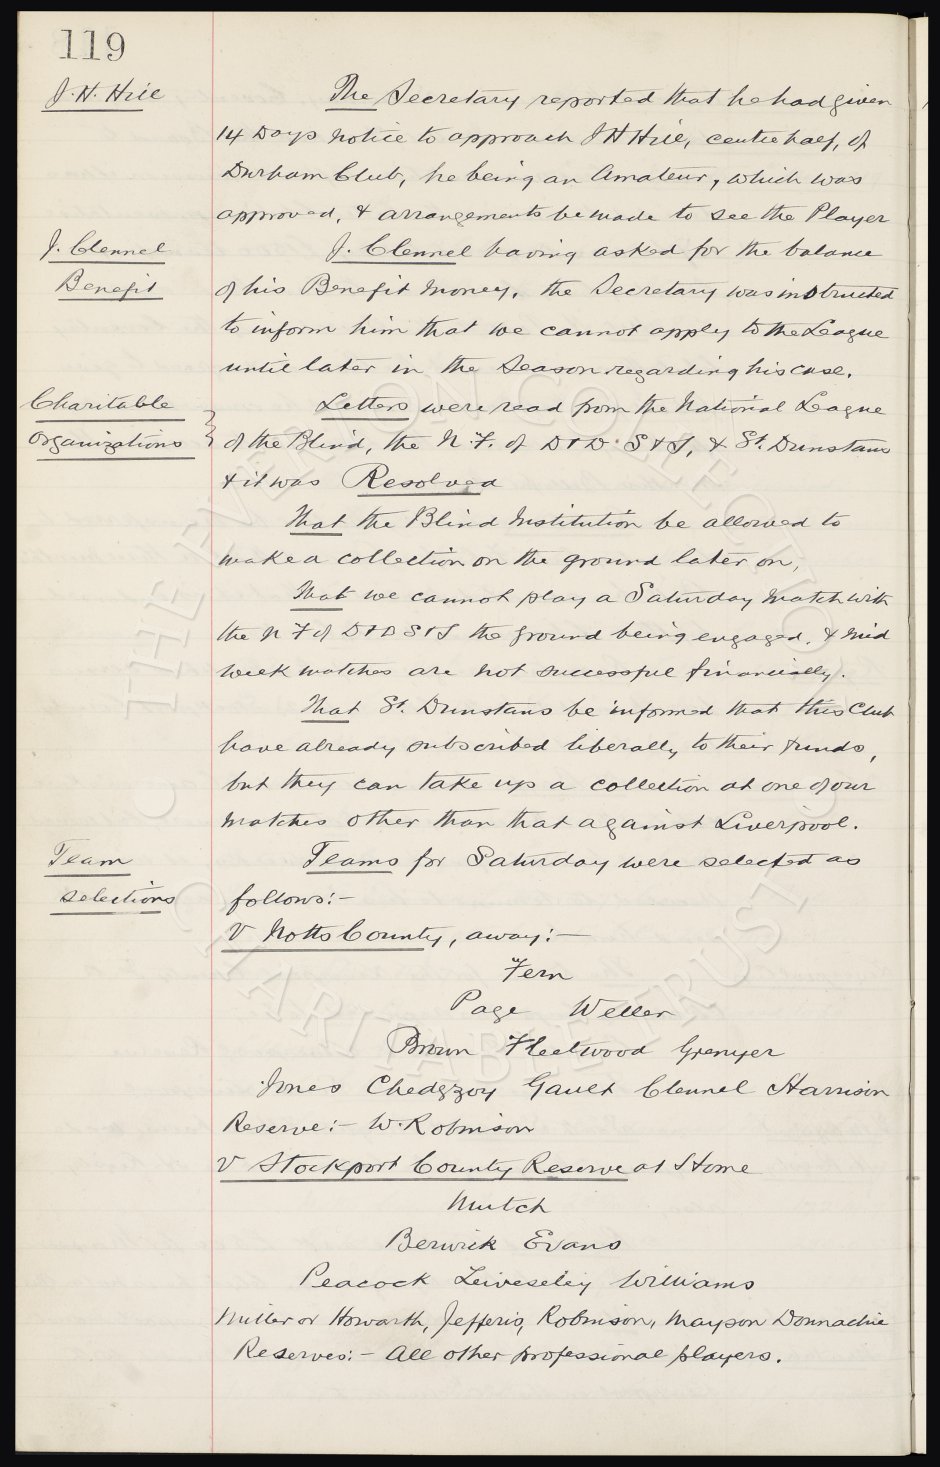 119
J. H. Hill
The Secretary reported that he had given
14 Days notice to approach J H Hill, centre half, of
Durham Club, he being an Amateur, which was
approved, & arrangements be made to see the Player
J. Clennel
Benefit
J. Clennel having asked for the balance
of his Benefit money, the Secretary was instructed
to inform him that we cannot apply to the League
until later in the Season regarding his case.
Charitable
Organizations
Letters were read from the National League
of the Blind, the N. F. of D & D. S & S, & St. Dunstans
& it was Resolved
That the Blind Institution be allowed to
make a collection on the ground later on,
That we cannot play a Saturday match with
the N F of D & D S & S the ground being engaged, & mid
week matches are not successful financially.
That St. Dunstans be informed that this Club
have already subscribed liberally to their funds,
but they can take up a collection at one of our
matches other than that against Liverpool.
Team
selections
Teams for Saturday were selected as
follows:-
V Notts County, away:-
Fern
Page Weller
Brown Fleetwood Grenyer
Jones Chedgzoy Gault Clennel Harrison
Reserve:- W. Robinson
V Stockport County Reserve at Home
Mutch
Berwick Evans
Peacock Leiveseley Williams
Miller or Howarth, Jefferis, Robinson, Mayson Donnachie
Reserves:- All other professional players.
THE EVERTON COLLECTION
CHARITABLE TRUST